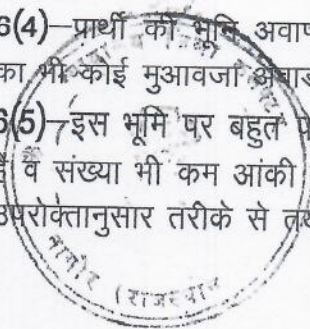 6(4)–प्रार्थी की भूमि अवाप
का भी कोई मुआवजा अवाड
6(5)–इस भूमि पर बहुत पे
हैं व संख्या भी कम आंकी
उपरोक्तानुसार तरीके से तथ
नागौर (राजस्थान